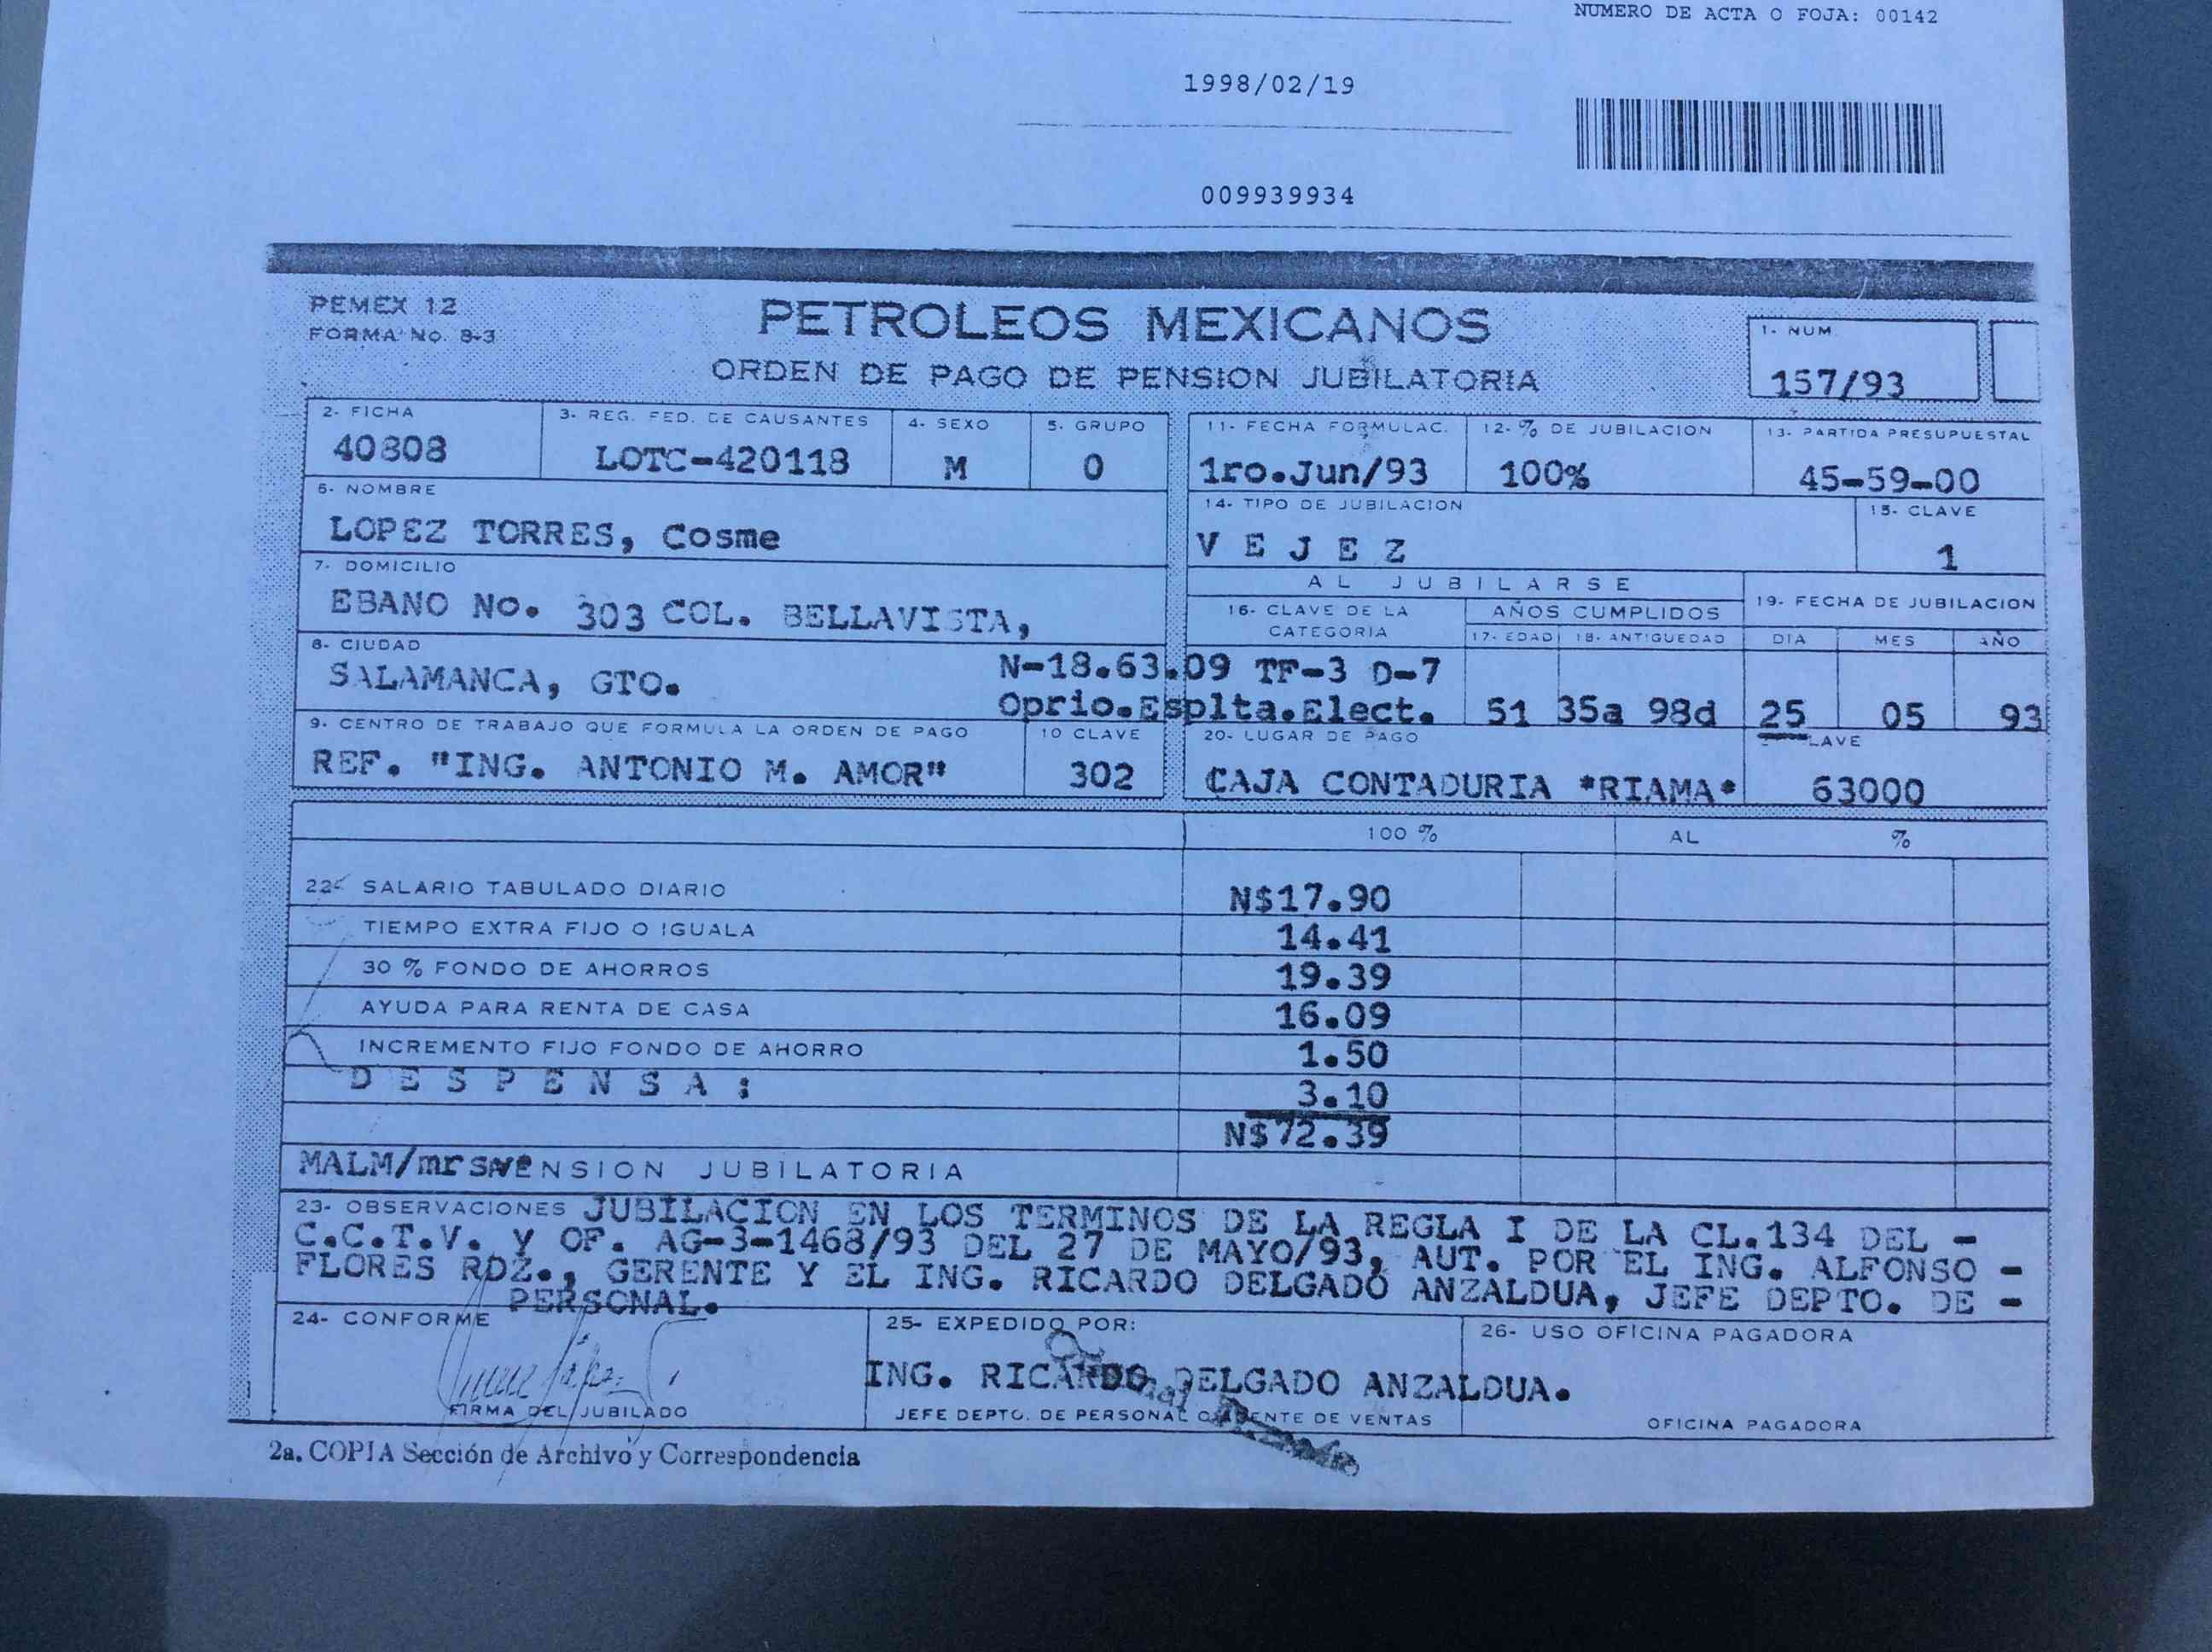 NUMERO DE ACTA O FOJA: 00142
1998/02/19
009939934
PEMEX 12
FORMA No. 8-3
PETROLEOS MEXICANOS
ORDEN DE PAGO DE PENSION JUBILATORIA
1- NUM.
157/93
2- FICHA
40808
3- REG. FED. DE CAUSANTES
LOTC-420118
4- SEXO
M
5- GRUPO
0
11- FECHA FORMULAC.
1ro.Jun/93
12- % DE JUBILACION
100%
13- PARTIDA PRESUPUESTAL
45-59-00
6- NOMBRE
LOPEZ TORRES, Cosme
14- TIPO DE JUBILACION
V E J E Z
15- CLAVE
1
7- DOMICILIO
EBANO No. 303 COL. BELLAVISTA,
AL JUBILARSE
16- CLAVE DE LA CATEGORIA
AÑOS CUMPLIDOS
17- EDAD
18- ANTIGUEDAD
19- FECHA DE JUBILACION
DIA MES AÑO
8- CIUDAD
SALAMANCA, GTO.
N-18.63.09 TF-3 D-7
Oprio.Esplta.Elect.
51 35a 98d 25 05 93
9. CENTRO DE TRABAJO QUE FORMULA LA ORDEN DE PAGO
REF. "ING. ANTONIO M. AMOR"
10 CLAVE
302
20- LUGAR DE PAGO
CAJA CONTADURIA *RIAMA*
LAVE
63000
100 % AL %
22- SALARIO TABULADO DIARIO N$17.90
TIEMPO EXTRA FIJO O IGUALA 14.41
30 % FONDO DE AHORROS 19.39
AYUDA PARA RENTA DE CASA 16.09
INCREMENTO FIJO FONDO DE AHORRO 1.50
D E S P E N S A : 3.10
N$72.39
MALM/mrs ENSION JUBILATORIA
23- OBSERVACIONES JUBILACION EN LOS TERMINOS DE LA REGLA I DE LA CL.134 DEL -
C.C.T.V. y OF. AG-3-1468/93 DEL 27 DE MAYO/93, AUT. POR EL ING. ALFONSO -
FLORES RDZ., GERENTE Y EL ING. RICARDO DELGADO ANZALDUA, JEFE DEPTO. DE -
PERSONAL.
24- CONFORME
FIRMA DEL JUBILADO
25- EXPEDIDO POR:
ING. RICARDO DELGADO ANZALDUA.
JEFE DEPTO. DE PERSONAL O GERENTE DE VENTAS
26- USO OFICINA PAGADORA
OFICINA PAGADORA
2a. COPIA Sección de Archivo y Correspondencia